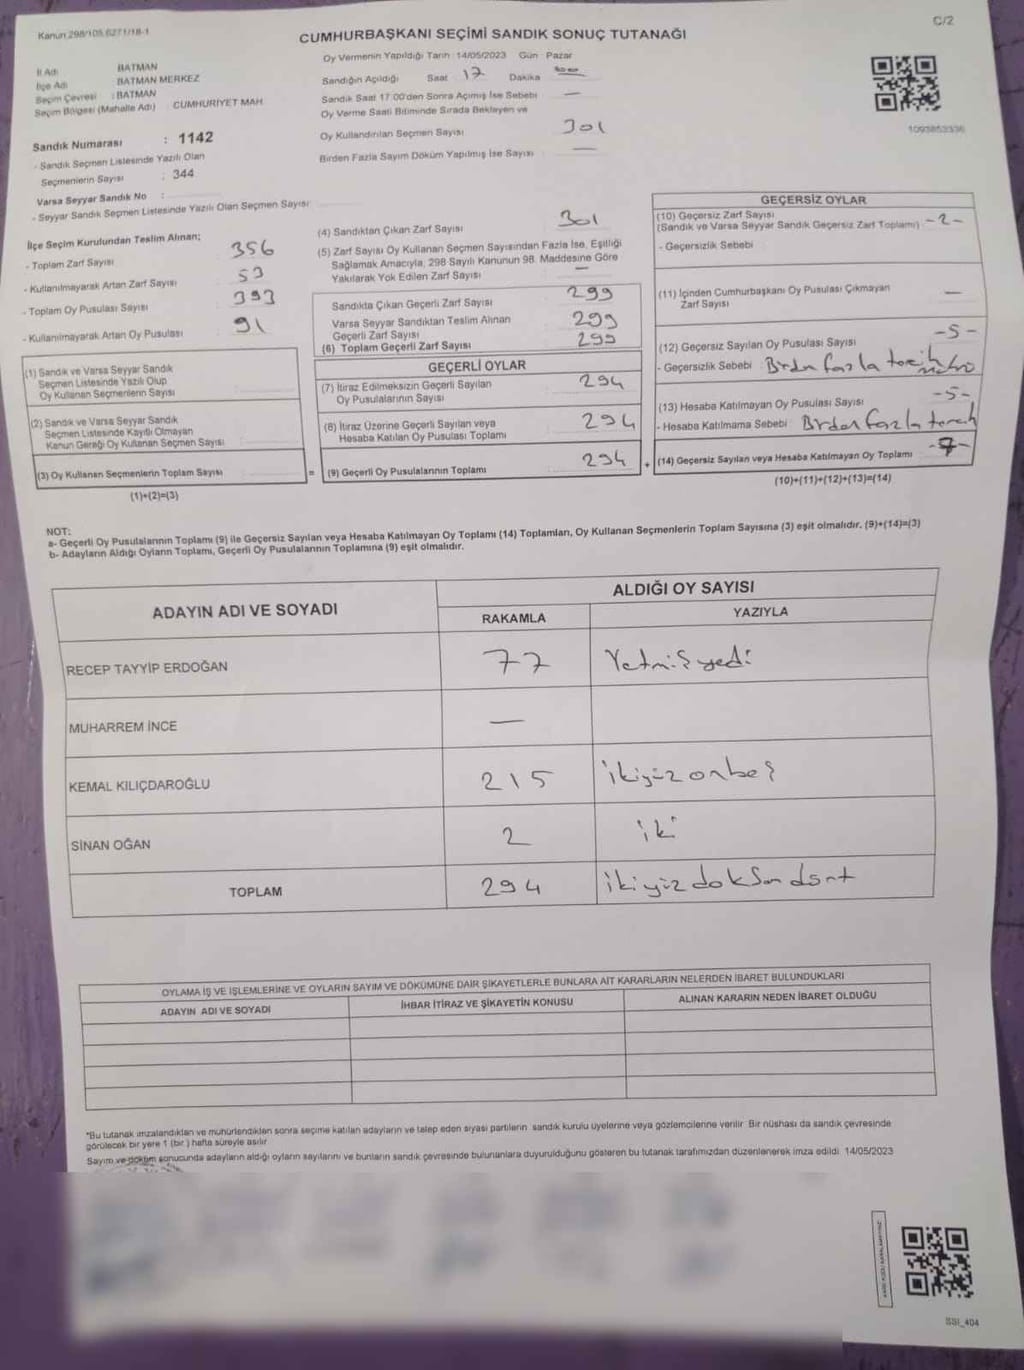 Kanun 298/105.6271/18-1
C/2
CUMHURBAŞKANI SEÇİMİ SANDIK SONUÇ TUTANAĞI
Oy Vermenin Yapıldığı Tarih : 14/05/2023 Gün : Pazar
İl Adı BATMAN
İlçe Adı BATMAN MERKEZ
Seçim Çevresi : BATMAN
Seçim Bölgesi (Mahalle Adı) CUMHURİYET MAH.
Sandığın Açıldığı Saat 17 Dakika
Sandık Saat 17:00'den Sonra Açılmış İse Sebebi —
Oy Verme Saati Bitiminde Sırada Bekleyen ve
Oy Kullandırılan Seçmen Sayısı 301
Birden Fazla Sayım Döküm Yapılmış İse Sayısı —
1093853336
Sandık Numarası : 1142
- Sandık Seçmen Listesinde Yazılı Olan
Seçmenlerin Sayısı : 344
Varsa Seyyar Sandık No :
- Seyyar Sandık Seçmen Listesinde Yazılı Olan Seçmen Sayısı
İlçe Seçim Kurulundan Teslim Alınan;
- Toplam Zarf Sayısı 356
- Kullanılmayarak Artan Zarf Sayısı 53
- Toplam Oy Pusulası Sayısı 393
- Kullanılmayarak Artan Oy Pusulası 91
(1) Sandık ve Varsa Seyyar Sandık
Seçmen Listesinde Yazılı Olup
Oy Kullanan Seçmenlerin Sayısı
(2) Sandık ve Varsa Seyyar Sandık
Seçmen Listesinde Kayıtlı Olmayan
Kanun Gereği Oy Kullanan Seçmen Sayısı
(3) Oy Kullanan Seçmenlerin Toplam Sayısı
(1)+(2)=(3)
(4) Sandıktan Çıkan Zarf Sayısı 301
(5) Zarf Sayısı Oy Kullanan Seçmen Sayısından Fazla İse, Eşitliği
Sağlamak Amacıyla, 298 Sayılı Kanunun 98. Maddesine Göre
Yakılarak Yok Edilen Zarf Sayısı —
Sandıkta Çıkan Geçerli Zarf Sayısı 299
Varsa Seyyar Sandıktan Teslim Alınan
Geçerli Zarf Sayısı 299
(6) Toplam Geçerli Zarf Sayısı 299
GEÇERLİ OYLAR
(7) İtiraz Edilmeksizin Geçerli Sayılan
Oy Pusulalarının Sayısı 294
(8) İtiraz Üzerine Geçerli Sayılan veya
Hesaba Katılan Oy Pusulası Toplamı 294
= (9) Geçerli Oy Pusulalarının Toplamı 294
GEÇERSİZ OYLAR
(10) Geçersiz Zarf Sayısı
(Sandık ve Varsa Seyyar Sandık Geçersiz Zarf Toplamı) -2-
- Geçersizlik Sebebi
(11) İçinden Cumhurbaşkanı Oy Pusulası Çıkmayan
Zarf Sayısı —
(12) Geçersiz Sayılan Oy Pusulası Sayısı -5-
- Geçersizlik Sebebi Birden fazla tercih
(13) Hesaba Katılmayan Oy Pusulası Sayısı -5-
- Hesaba Katılmama Sebebi Birden fazla tercih
+ (14) Geçersiz Sayılan veya Hesaba Katılmayan Oy Toplamı -7-
(10)+(11)+(12)+(13)=(14)
NOT:
a- Geçerli Oy Pusulalarının Toplamı (9) ile Geçersiz Sayılan veya Hesaba Katılmayan Oy Toplamı (14) Toplamları, Oy Kullanan Seçmenlerin Toplam Sayısına (3) eşit olmalıdır. (9)+(14)=(3)
b- Adayların Aldığı Oyların Toplamı, Geçerli Oy Pusulalarının Toplamına (9) eşit olmalıdır.
ADAYIN ADI VE SOYADI
ALDIĞI OY SAYISI
RAKAMLA YAZIYLA
RECEP TAYYİP ERDOĞAN 77 Yetmiş yedi
MUHARREM İNCE —
KEMAL KILIÇDAROĞLU 215 ikiyüz onbeş
SİNAN OĞAN 2 iki
TOPLAM 294 ikiyüz doksan dört
OYLAMA İŞ VE İŞLEMLERİNE VE OYLARIN SAYIM VE DÖKÜMÜNE DAİR ŞİKAYETLERLE BUNLARA AİT KARARLARIN NELERDEN İBARET BULUNDUKLARI
ADAYIN ADI VE SOYADI İHBAR İTİRAZ VE ŞİKAYETİN KONUSU ALINAN KARARIN NEDEN İBARET OLDUĞU
*Bu tutanak imzalandıktan ve mühürlendikten sonra seçime katılan adayların ve talep eden siyasi partilerin sandık kurulu üyelerine veya gözlemcilerine verilir. Bir nüshası da sandık çevresinde
görülecek bir yere 1 (bir) hafta süreyle asılır.
Sayım ve döküm sonucunda adayların aldığı oyların sayılarını ve bunların sandık çevresinde bulunanlara duyurulduğunu gösteren bu tutanak tarafımızdan düzenlenerek imza edildi. 14/05/2023
SSI_404